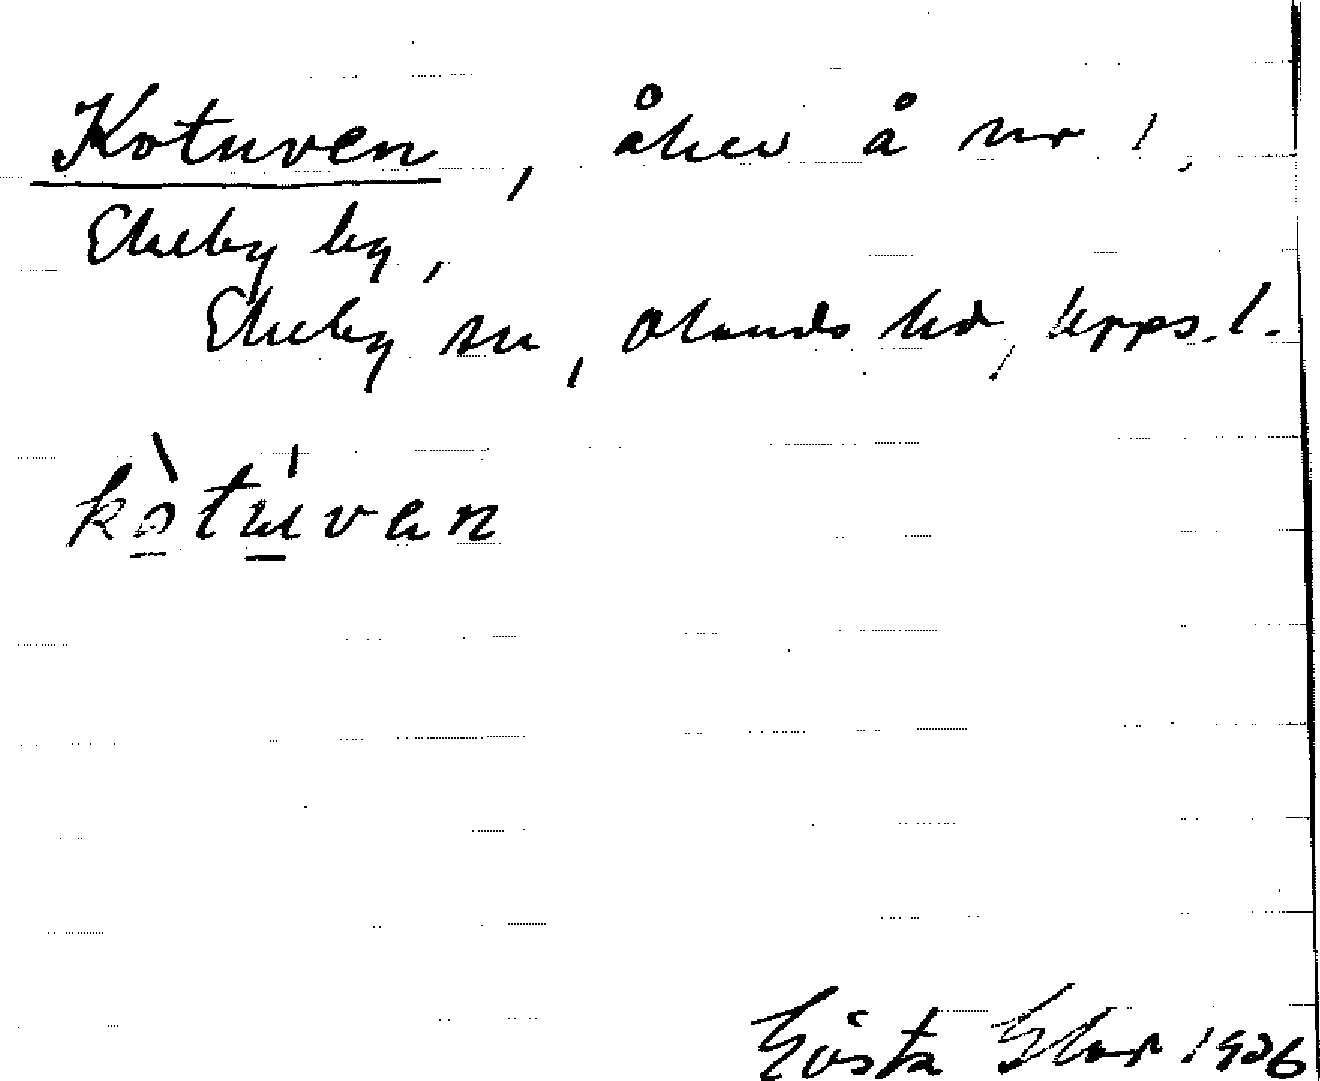 Kotuven, åker å nr 1,
Ekeby by,
Ekeby sn, Olands hd, Upps. l.
kòtúvan
Gösta 1926